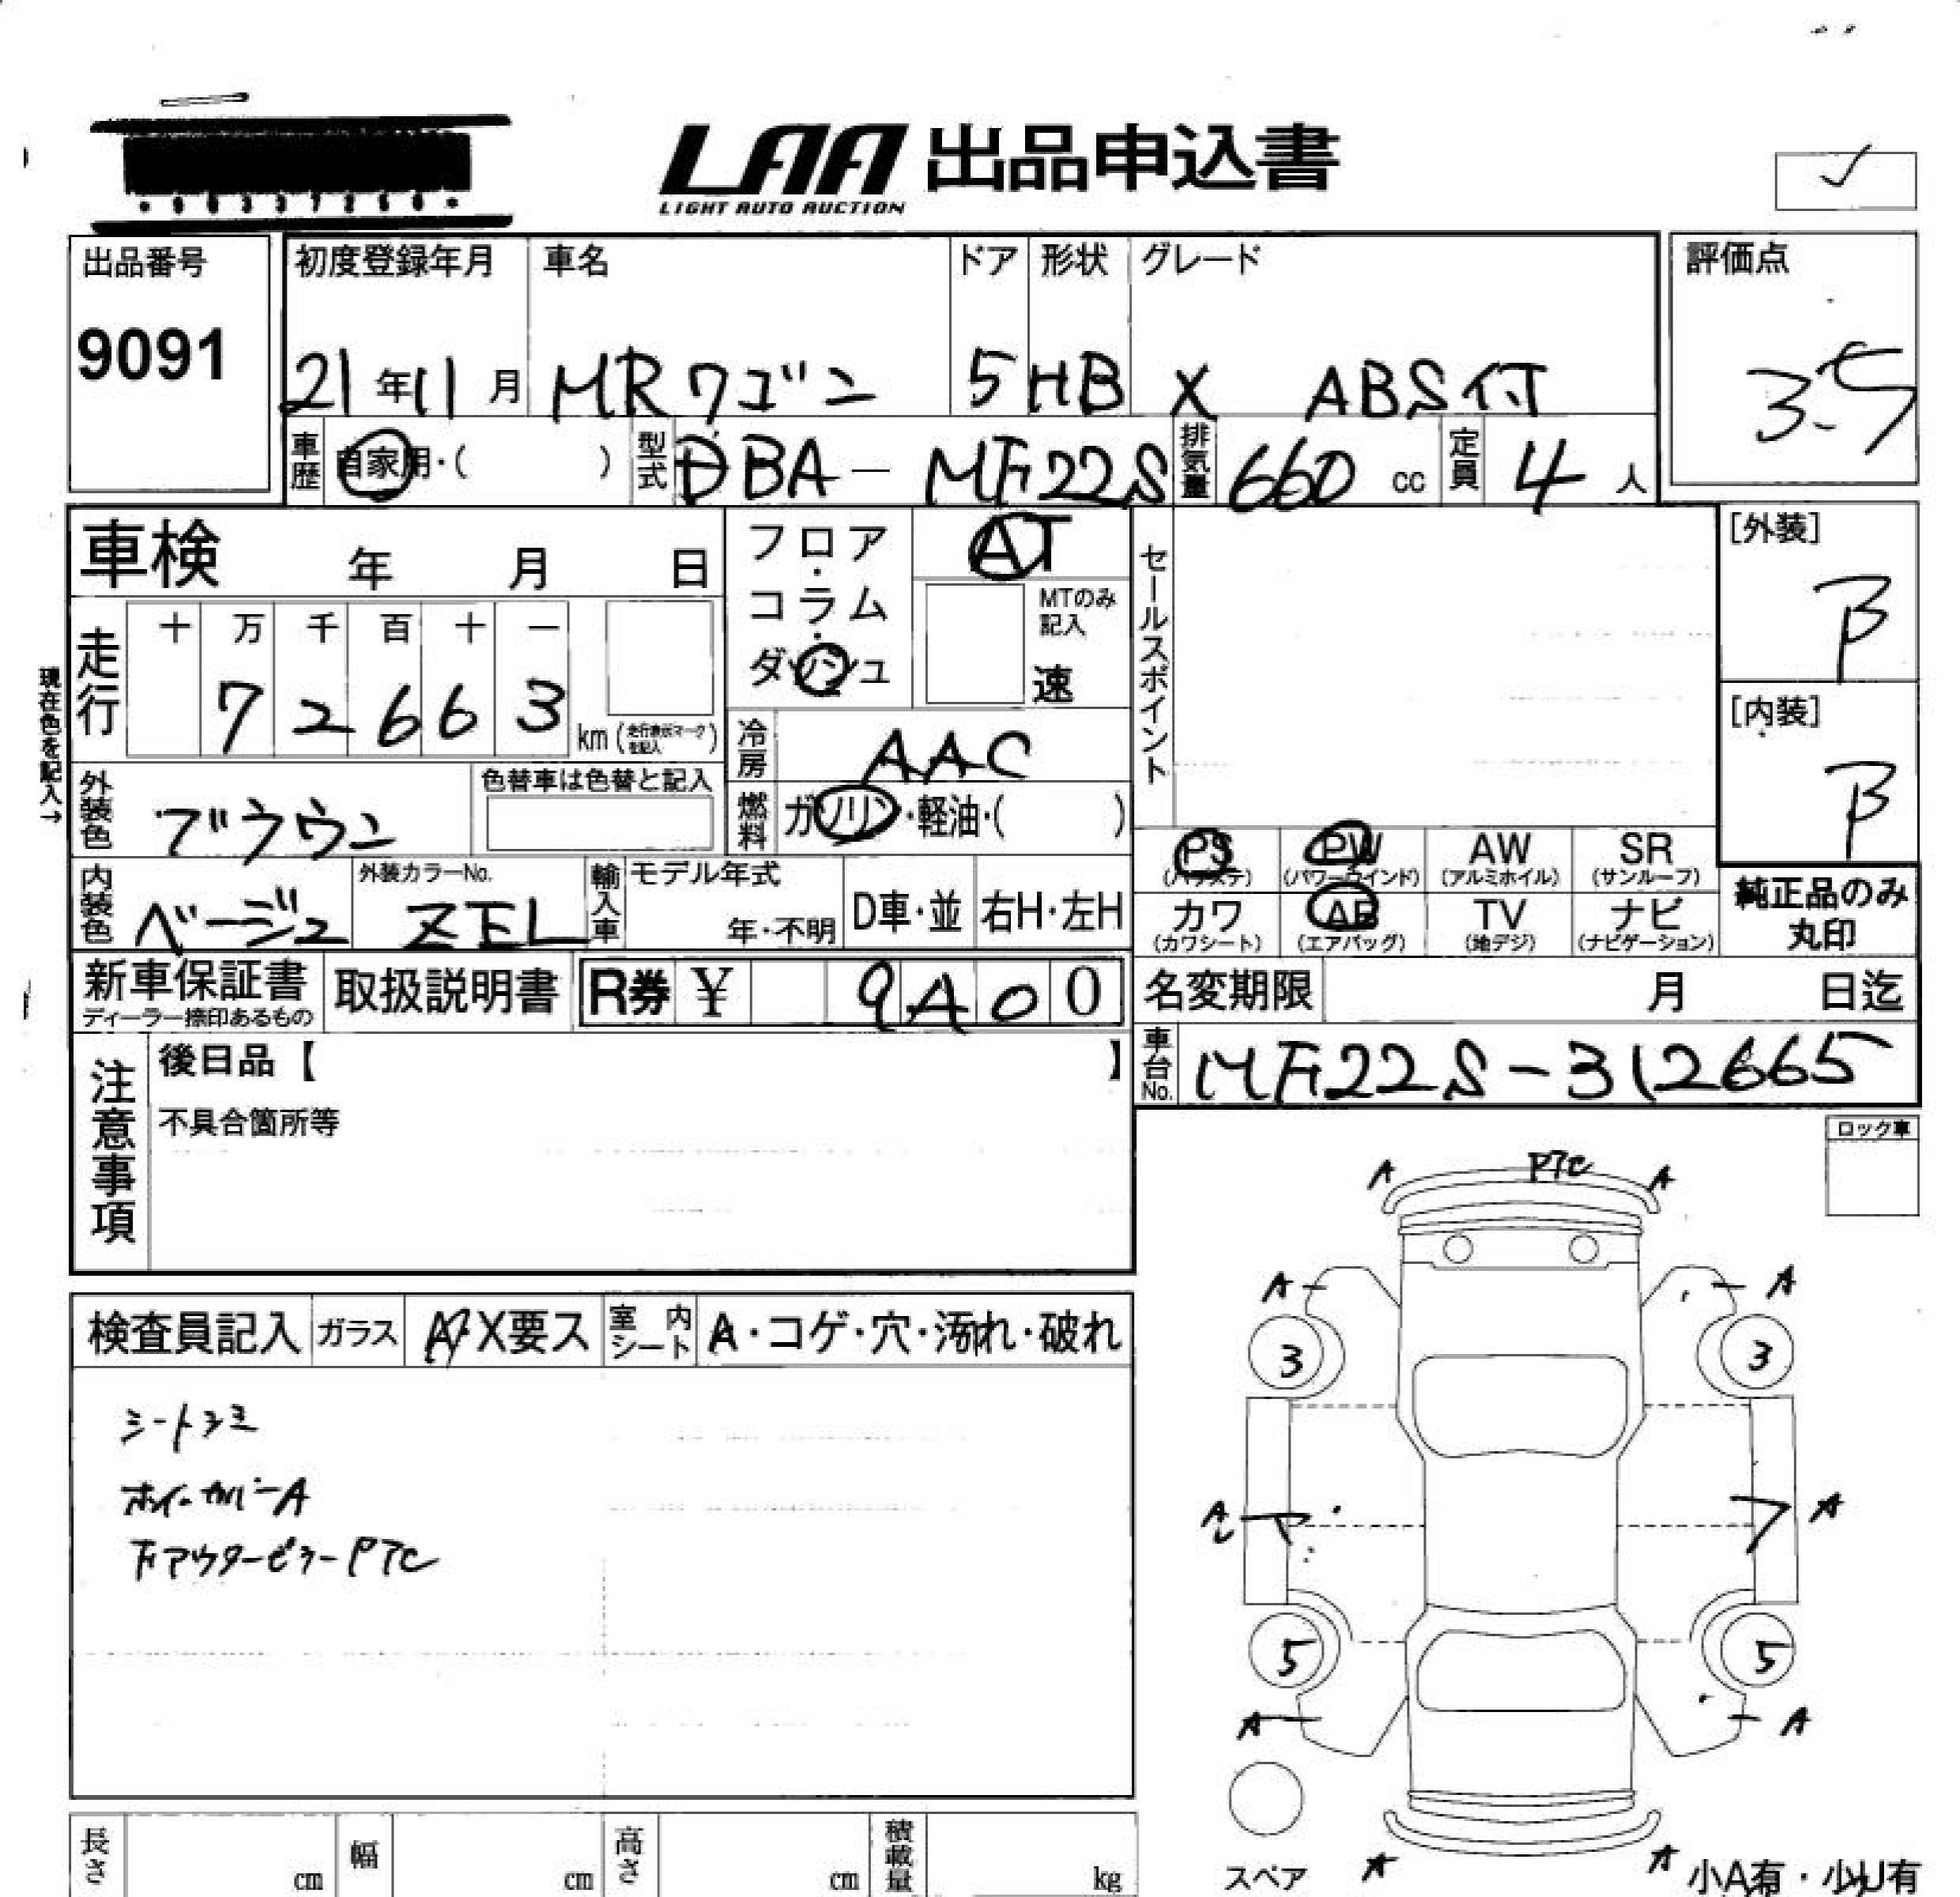 LAA 出品申込書
LIGHT AUTO AUCTION
出品番号
9091
初度登録年月 車名 ドア 形状 グレード
21年11月 MRワゴン 5 HB X ABS付
評価点
3.5
車歴 自家用・( ) 型式 DBA-MF22S 排気量 660 cc 定員 4 人
車検 年 月 日
フロア・コラム・ダッシュ
AT
MTのみ記入
速
セールスポイント
[外装]
B
[内装]
B
現在色を記入→
走行 十 万 千 百 十 一
7 2 6 6 3 km (走行表示マークを記入)
冷房 AAC
外装色 ブラウン 色替車は色替と記入
燃料 ガソリン・軽油・( )
内装色 ベージュ 外装カラーNo. ZEL
輸入車 モデル年式 年・不明 D車・並 右H・左H
PS PW AW SR
(パワステ) (パワーウインド) (アルミホイル) (サンルーフ)
カワ AB TV ナビ
(カワシート) (エアバッグ) (地デジ) (ナビゲーション)
純正品のみ
丸印
新車保証書
ディーラー捺印あるもの
取扱説明書 R券 ¥ 9A00
名変期限 月 日迄
車台No. MF22S-312665
注意事項
後日品【 】
不具合箇所等
ロック車
検査員記入 ガラス A・X要ス 室内シート A・コゲ・穴・汚れ・破れ
シートシミ
ホイールカバーA
下アウターピラーPTC
A PTC A
A A
3 3
A A
5 5
A A
スペア A A 小A有・少U有
長さ cm 幅 cm 高さ cm 積載量 kg